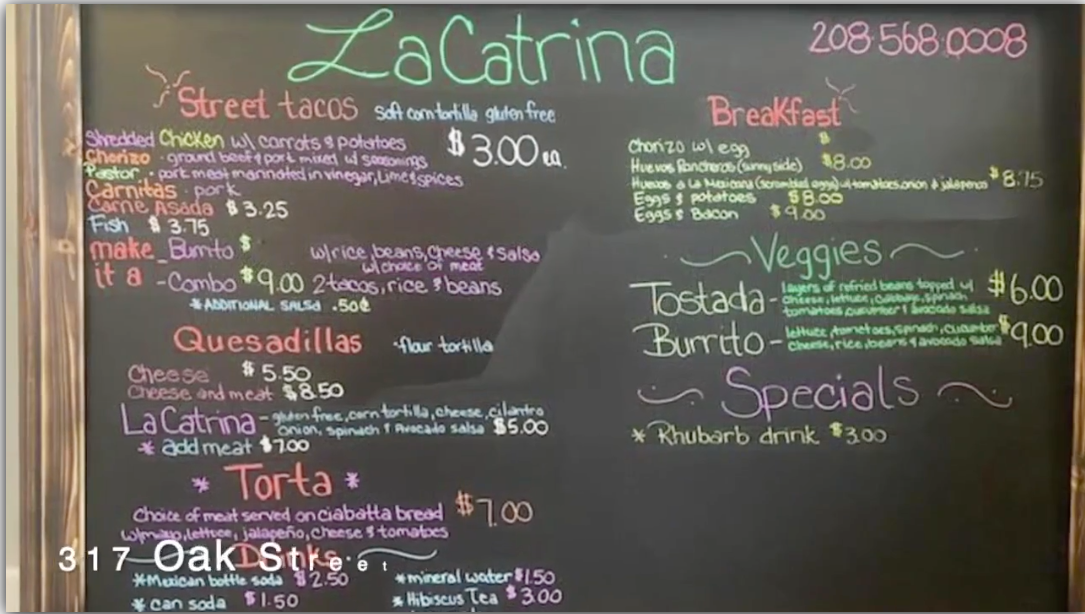 La Catrina
208.568.0008
Street tacos soft corn tortilla gluten free
Shredded Chicken w/ carrots & potatoes
$3.00 ea.
Chorizo - ground beef & pork mixed w/ seasonings
Pastor - pork meat marinated in vinegar, Lime & spices
Carnitas - pork
Carne Asada $3.25
Fish $3.75
make it a
- Burrito $ w/ rice, beans, cheese & salsa
w/ choice of meat
- Combo $9.00 2 tacos, rice & beans
* ADDITIONAL SALSA .50¢
Quesadillas - flour tortilla
Cheese $5.50
Cheese and meat $8.50
La Catrina - gluten free, corn tortilla, cheese, cilantro
onion, spinach & Avocado salsa $5.00
* add meat $7.00
* Torta *
Choice of meat served on ciabatta bread $7.00
w/ mayo, lettuce, jalapeño, cheese & tomatoes
Drinks
* Mexican bottle soda $2.50
* can soda $1.50
* mineral water $1.50
* Hibiscus Tea $3.00
Breakfast
Chorizo w/ egg $
Huevos Rancheros (sunny side) $8.00
Huevos a La Mexicana (scrambled eggs) w/ tomatoes, onion & jalapenos $8.75
Eggs & potatoes $8.00
Eggs & Bacon $9.00
Veggies
Tostada - layers of refried beans topped w/ $6.00
cheese, lettuce, cabbage, spinach
tomatoes, cucumber & avocado salsa
Burrito - lettuce, tomatoes, spinach, cucumber $9.00
cheese, rice, beans & avocado salsa
Specials
* Rhubarb drink $3.00
317 Oak Street